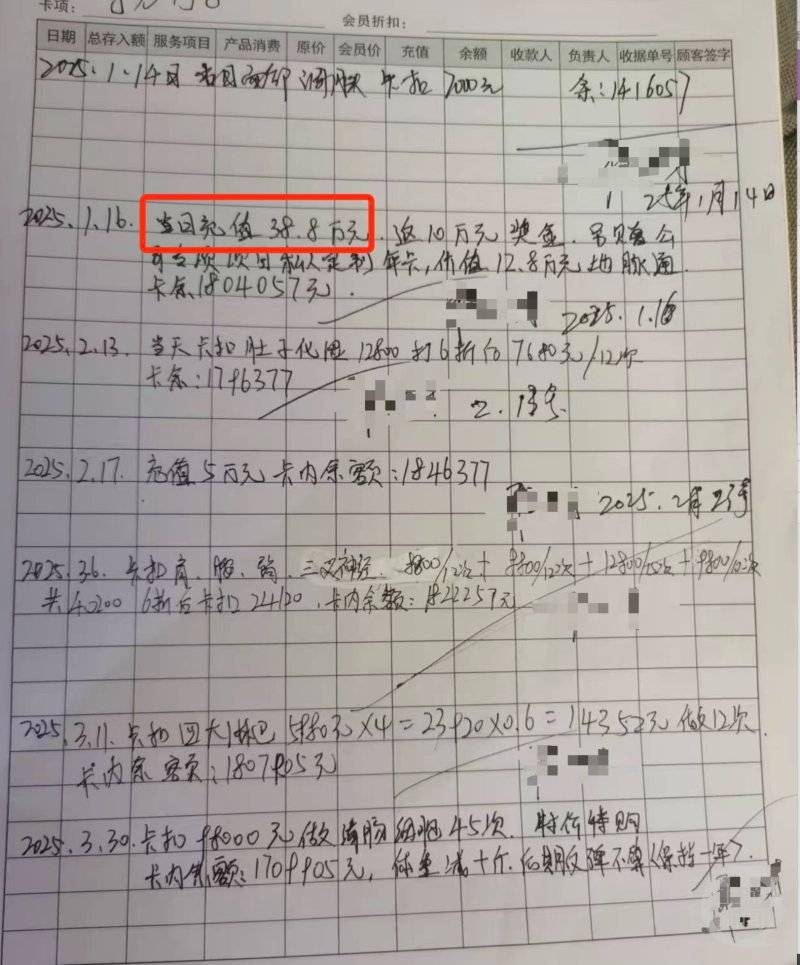 卡项:
会员折扣:
日期 总存入额 服务项目 产品消费 原价 会员价 充值 余额 收款人 负责人 收据单号 顾客签字
2025.1.14日 卡扣 7000元 余:1416057
25年1月14日
2025.1.16. 当日充值 38.8万元. 返10万元奖金.
项目私人定制年卡,价值12.8万元地脉通
卡余1804057元.
2025.1.16
2025.2.13. 当天卡扣肚子化 12800打6折后7680元/12次
卡余:1796377
2.13号
2025.2.17. 充值5万元 卡内余额:1846377
2025.2月23号
2025.3.6. 卡扣肩、腰、 三叉神经. 9800/12次+9800/12次+12800/ 次+9800/ 次
共40200 6折后卡扣24120.卡内余额:1822257元
2025.3.11.卡扣四大淋巴 5980元×4=23920×0.6=14352元 做12次
卡内余额:1807905元
2025.3.30.卡扣98000元做 45次. 特价特购
卡内余额:1709905元,体重减十斤.后期反弹不算(保持一年).